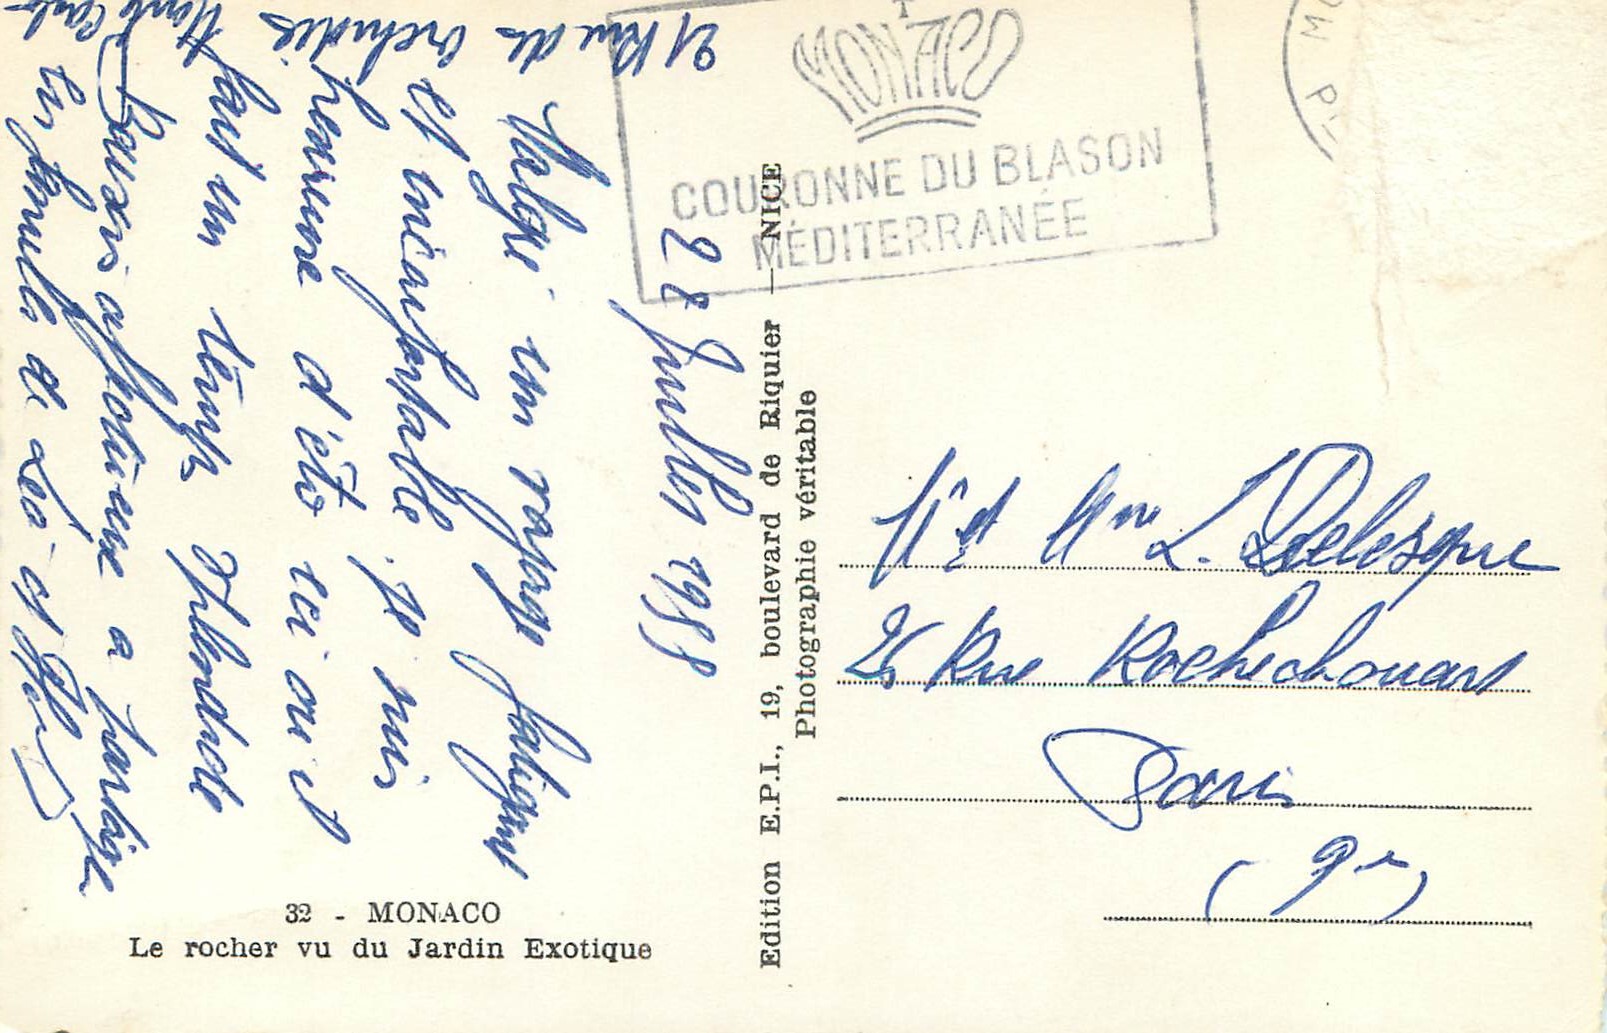 21 Rue des Orchidées
Monte Carlo
28 Juillet 1958
Malgré un voyage fatigant
et inconfortable. Je suis
heureuse d'être ici où il
fait un temps splendide
Baisers affectueux à partager
la famille de Léo et
32 - MONACO
Le rocher vu du Jardin Exotique
Edition E.P.I., 19, boulevard de Riquier — NICE
Photographie véritable
MONACO
COURONNE DU BLASON
MÉDITERRANÉE
Mr et Mme L. Delesque
26 Rue Rochechouart
Paris
(9e)